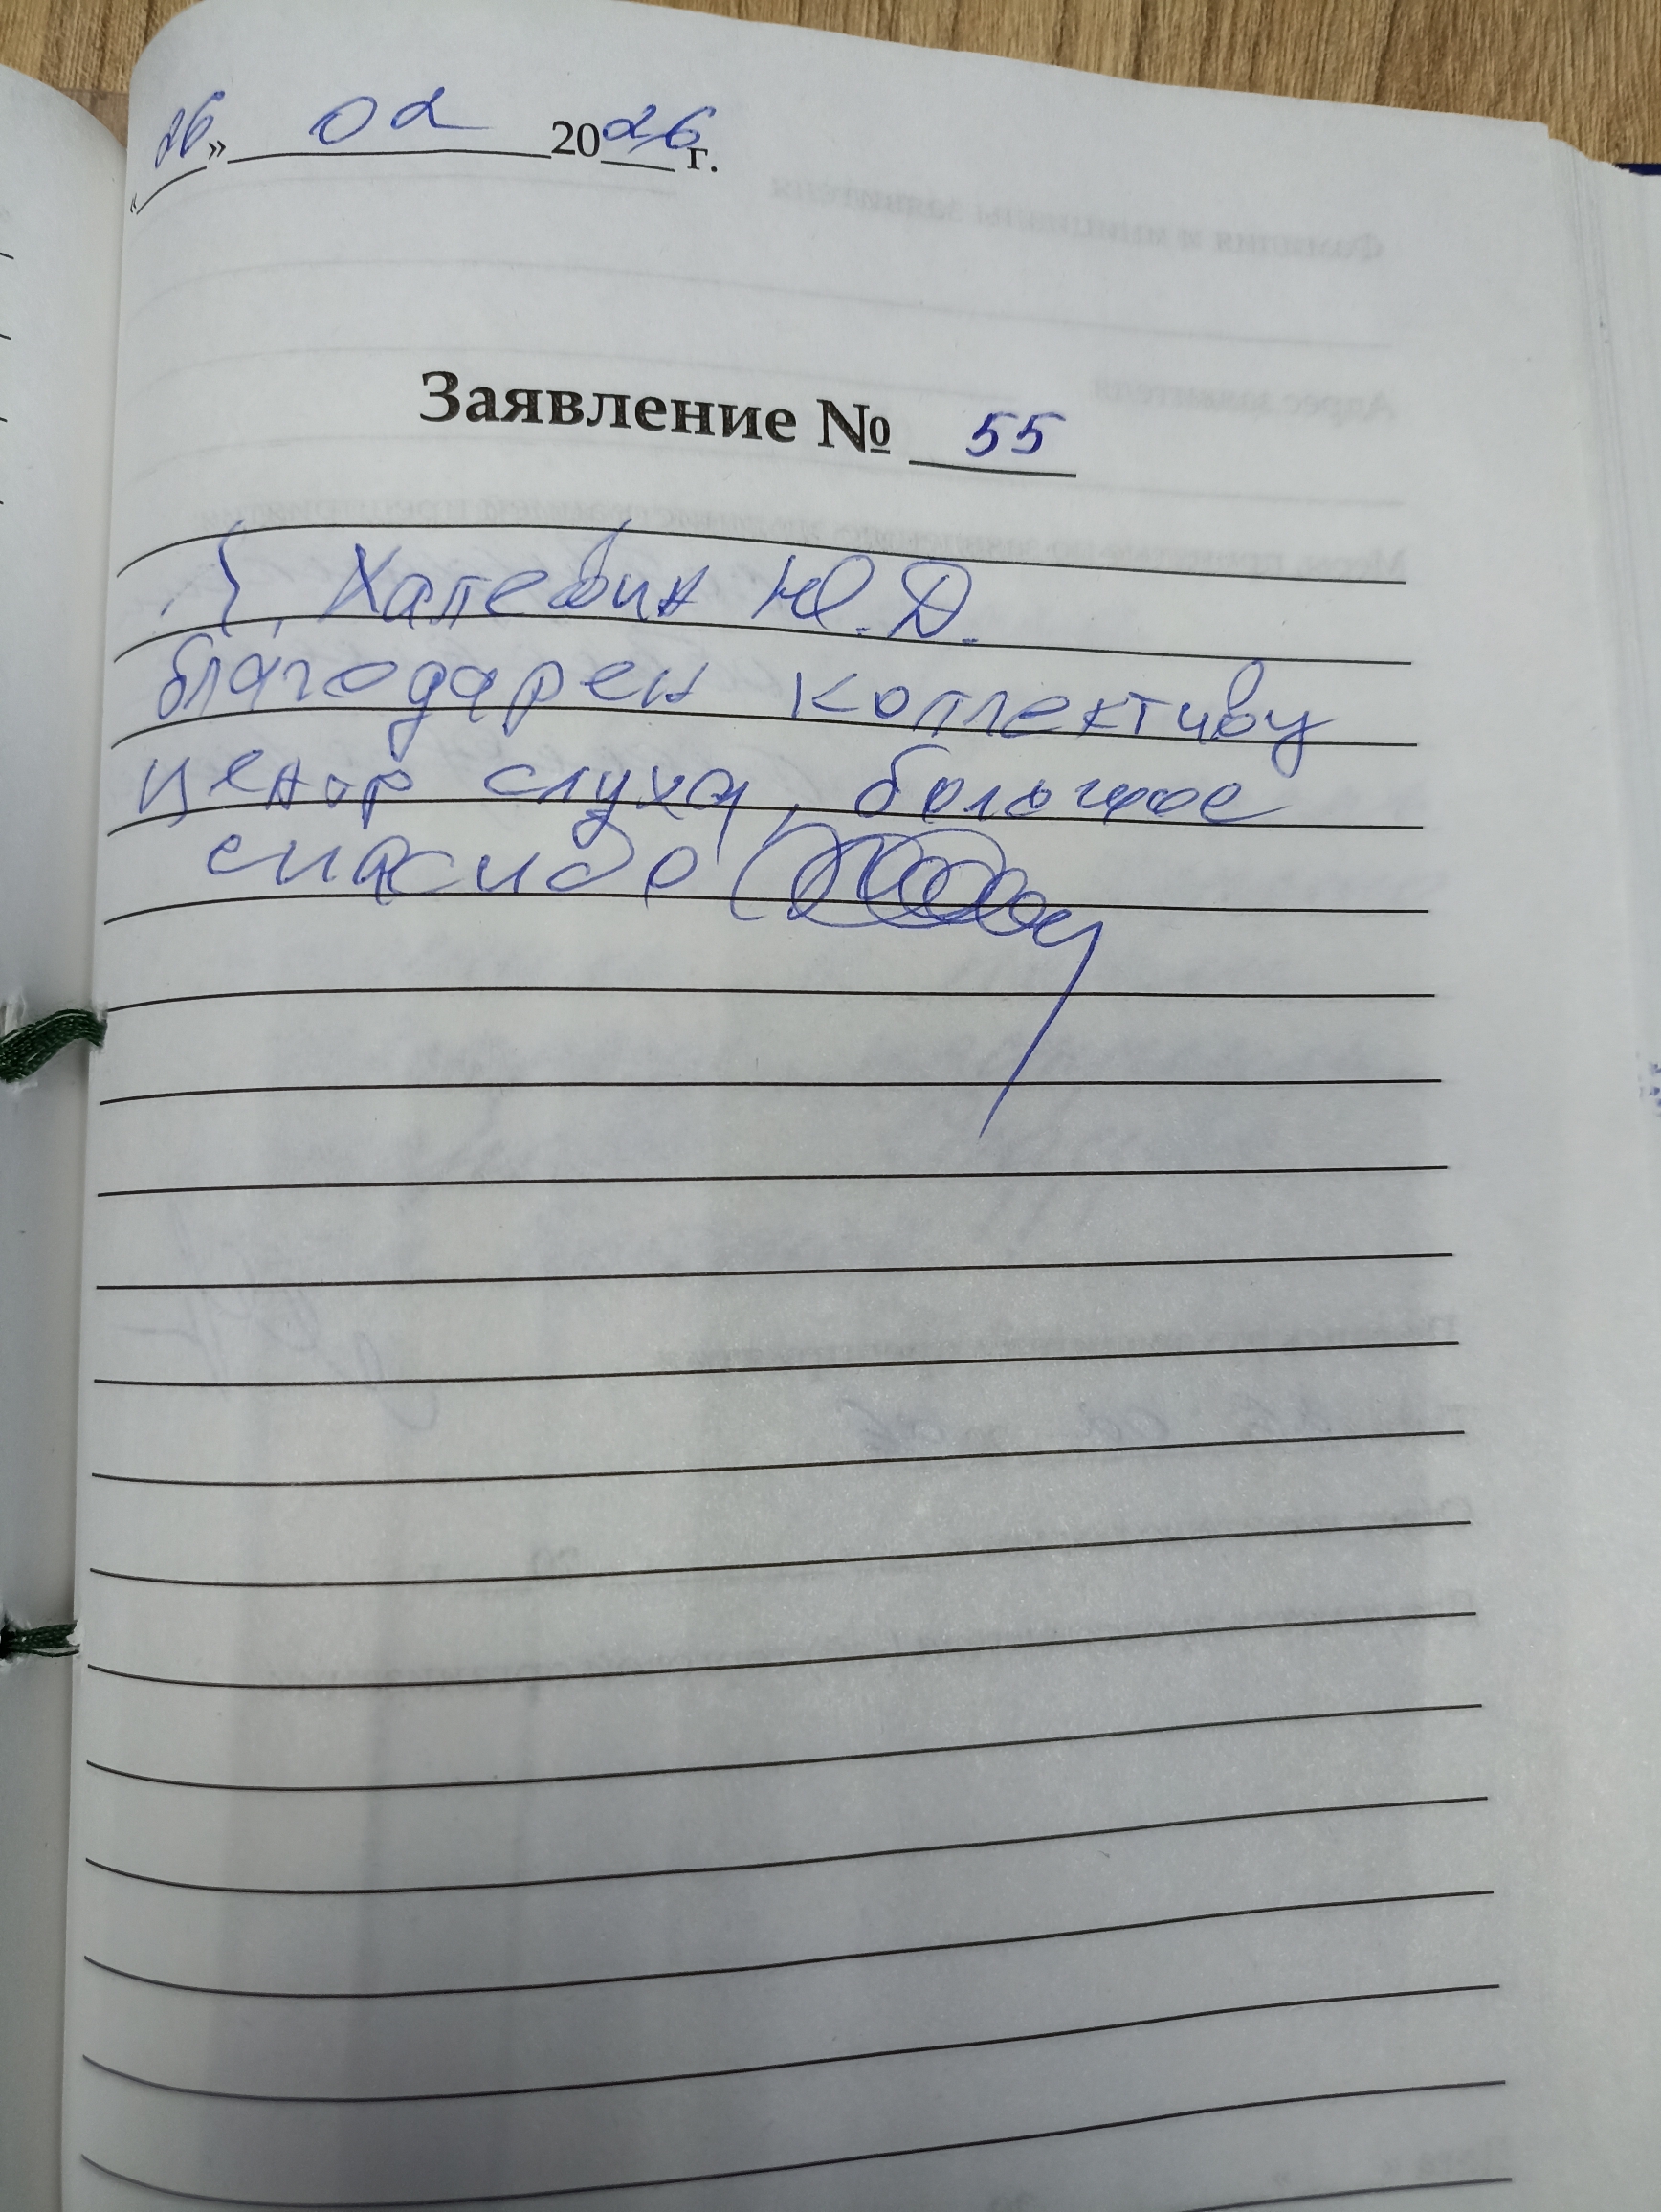 «26» 02 2026 г.
Заявление № 55
Я, Халевин Ю.Д.
благодарен коллективу
центр слуха, большое
спасибо